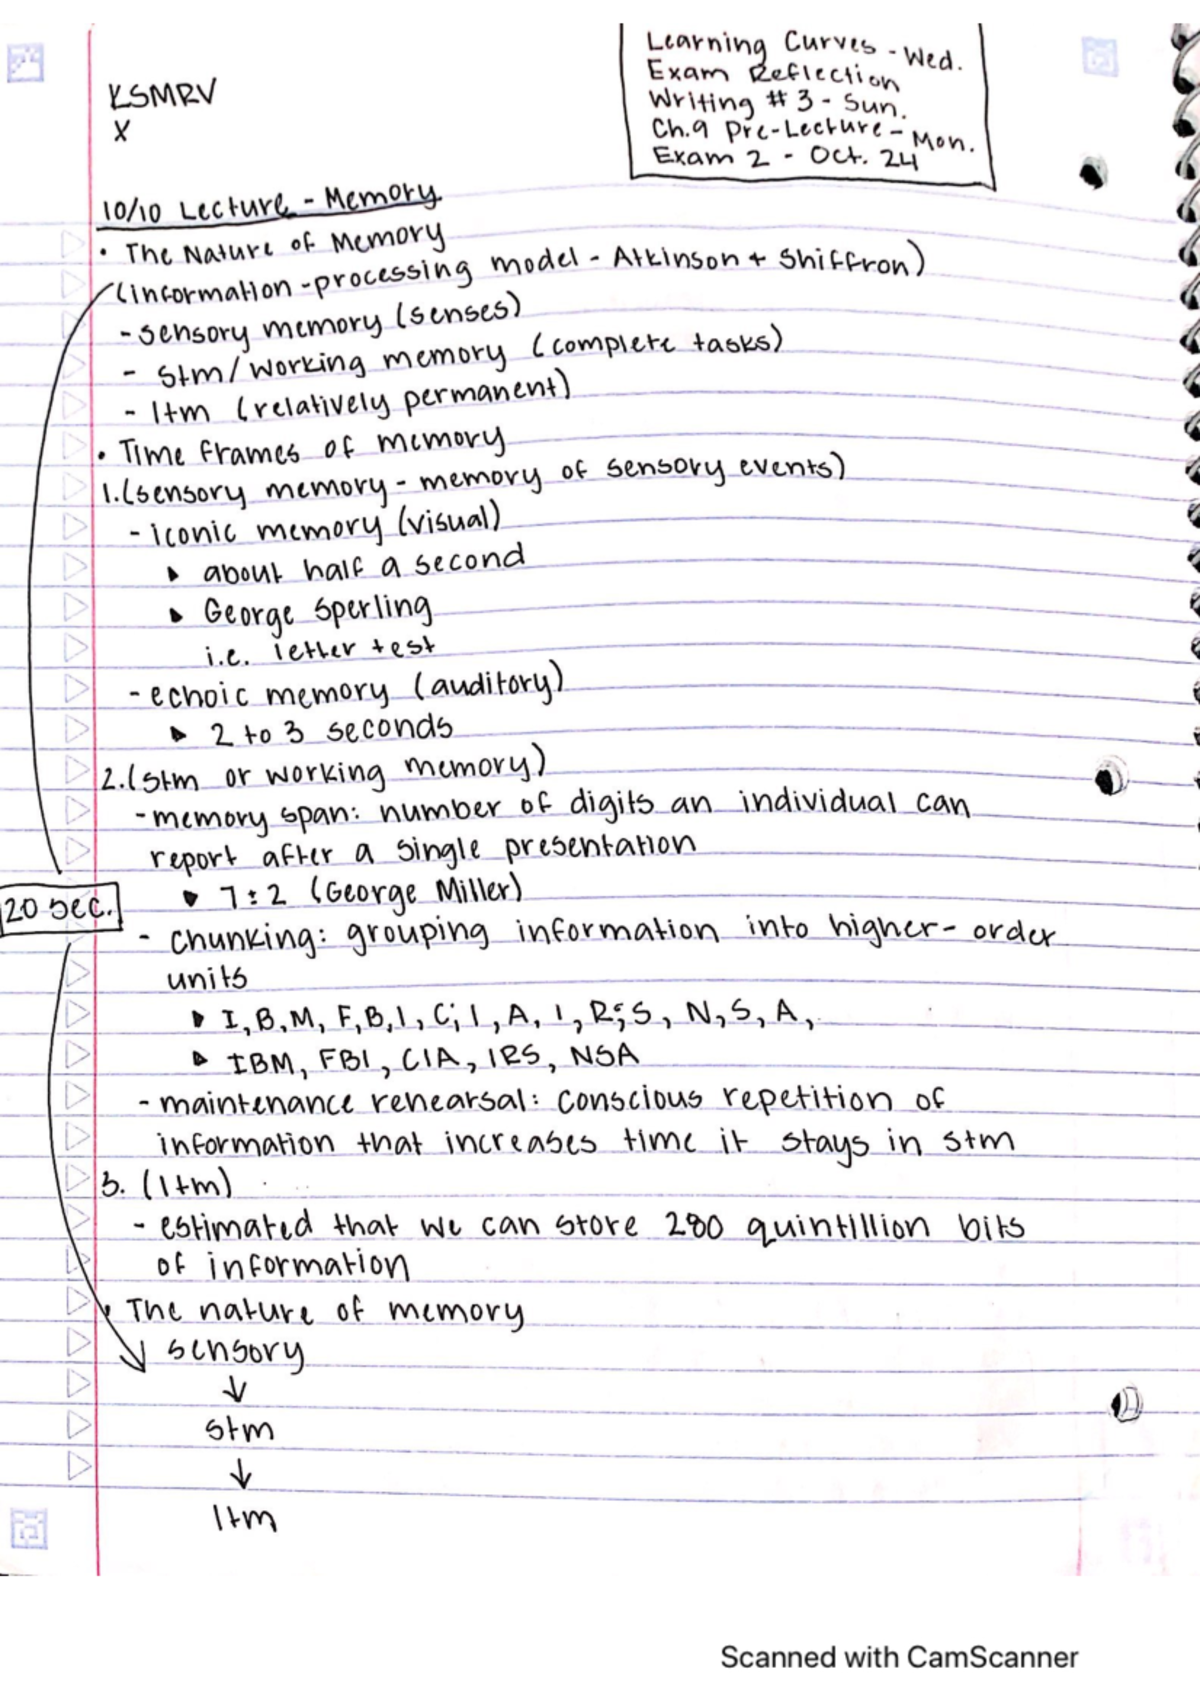 Learning Curves - Wed.
Exam Reflection
Writing #3 - Sun.
Ch.9 Pre-Lecture - Mon.
Exam 2 - Oct. 24
KSMRV
X
10/10 Lecture - Memory
• The Nature of Memory
(information-processing model - Atkinson + Shiffron)
- sensory memory (senses)
- stm/working memory (complete tasks)
- ltm (relatively permanent)
• Time frames of memory
1.(sensory memory - memory of sensory events)
- iconic memory (visual)
▸ about half a second
▸ George Sperling
i.e. letter test
- echoic memory (auditory)
▸ 2 to 3 seconds
2.(stm or working memory)
- memory span: number of digits an individual can
report after a single presentation
▸ 7±2 (George Miller)
20 sec.
- chunking: grouping information into higher-order
units
▸ I, B, M, F, B, I, C, I, A, I, R, S, N, S, A,
▸ IBM, FBI, CIA, IRS, NSA
- maintenance rehearsal: conscious repetition of
information that increases time it stays in stm
3. (ltm)
- estimated that we can store 280 quintillion bits
of information
• The nature of memory
sensory
↓
stm
↓
ltm
Scanned with CamScanner